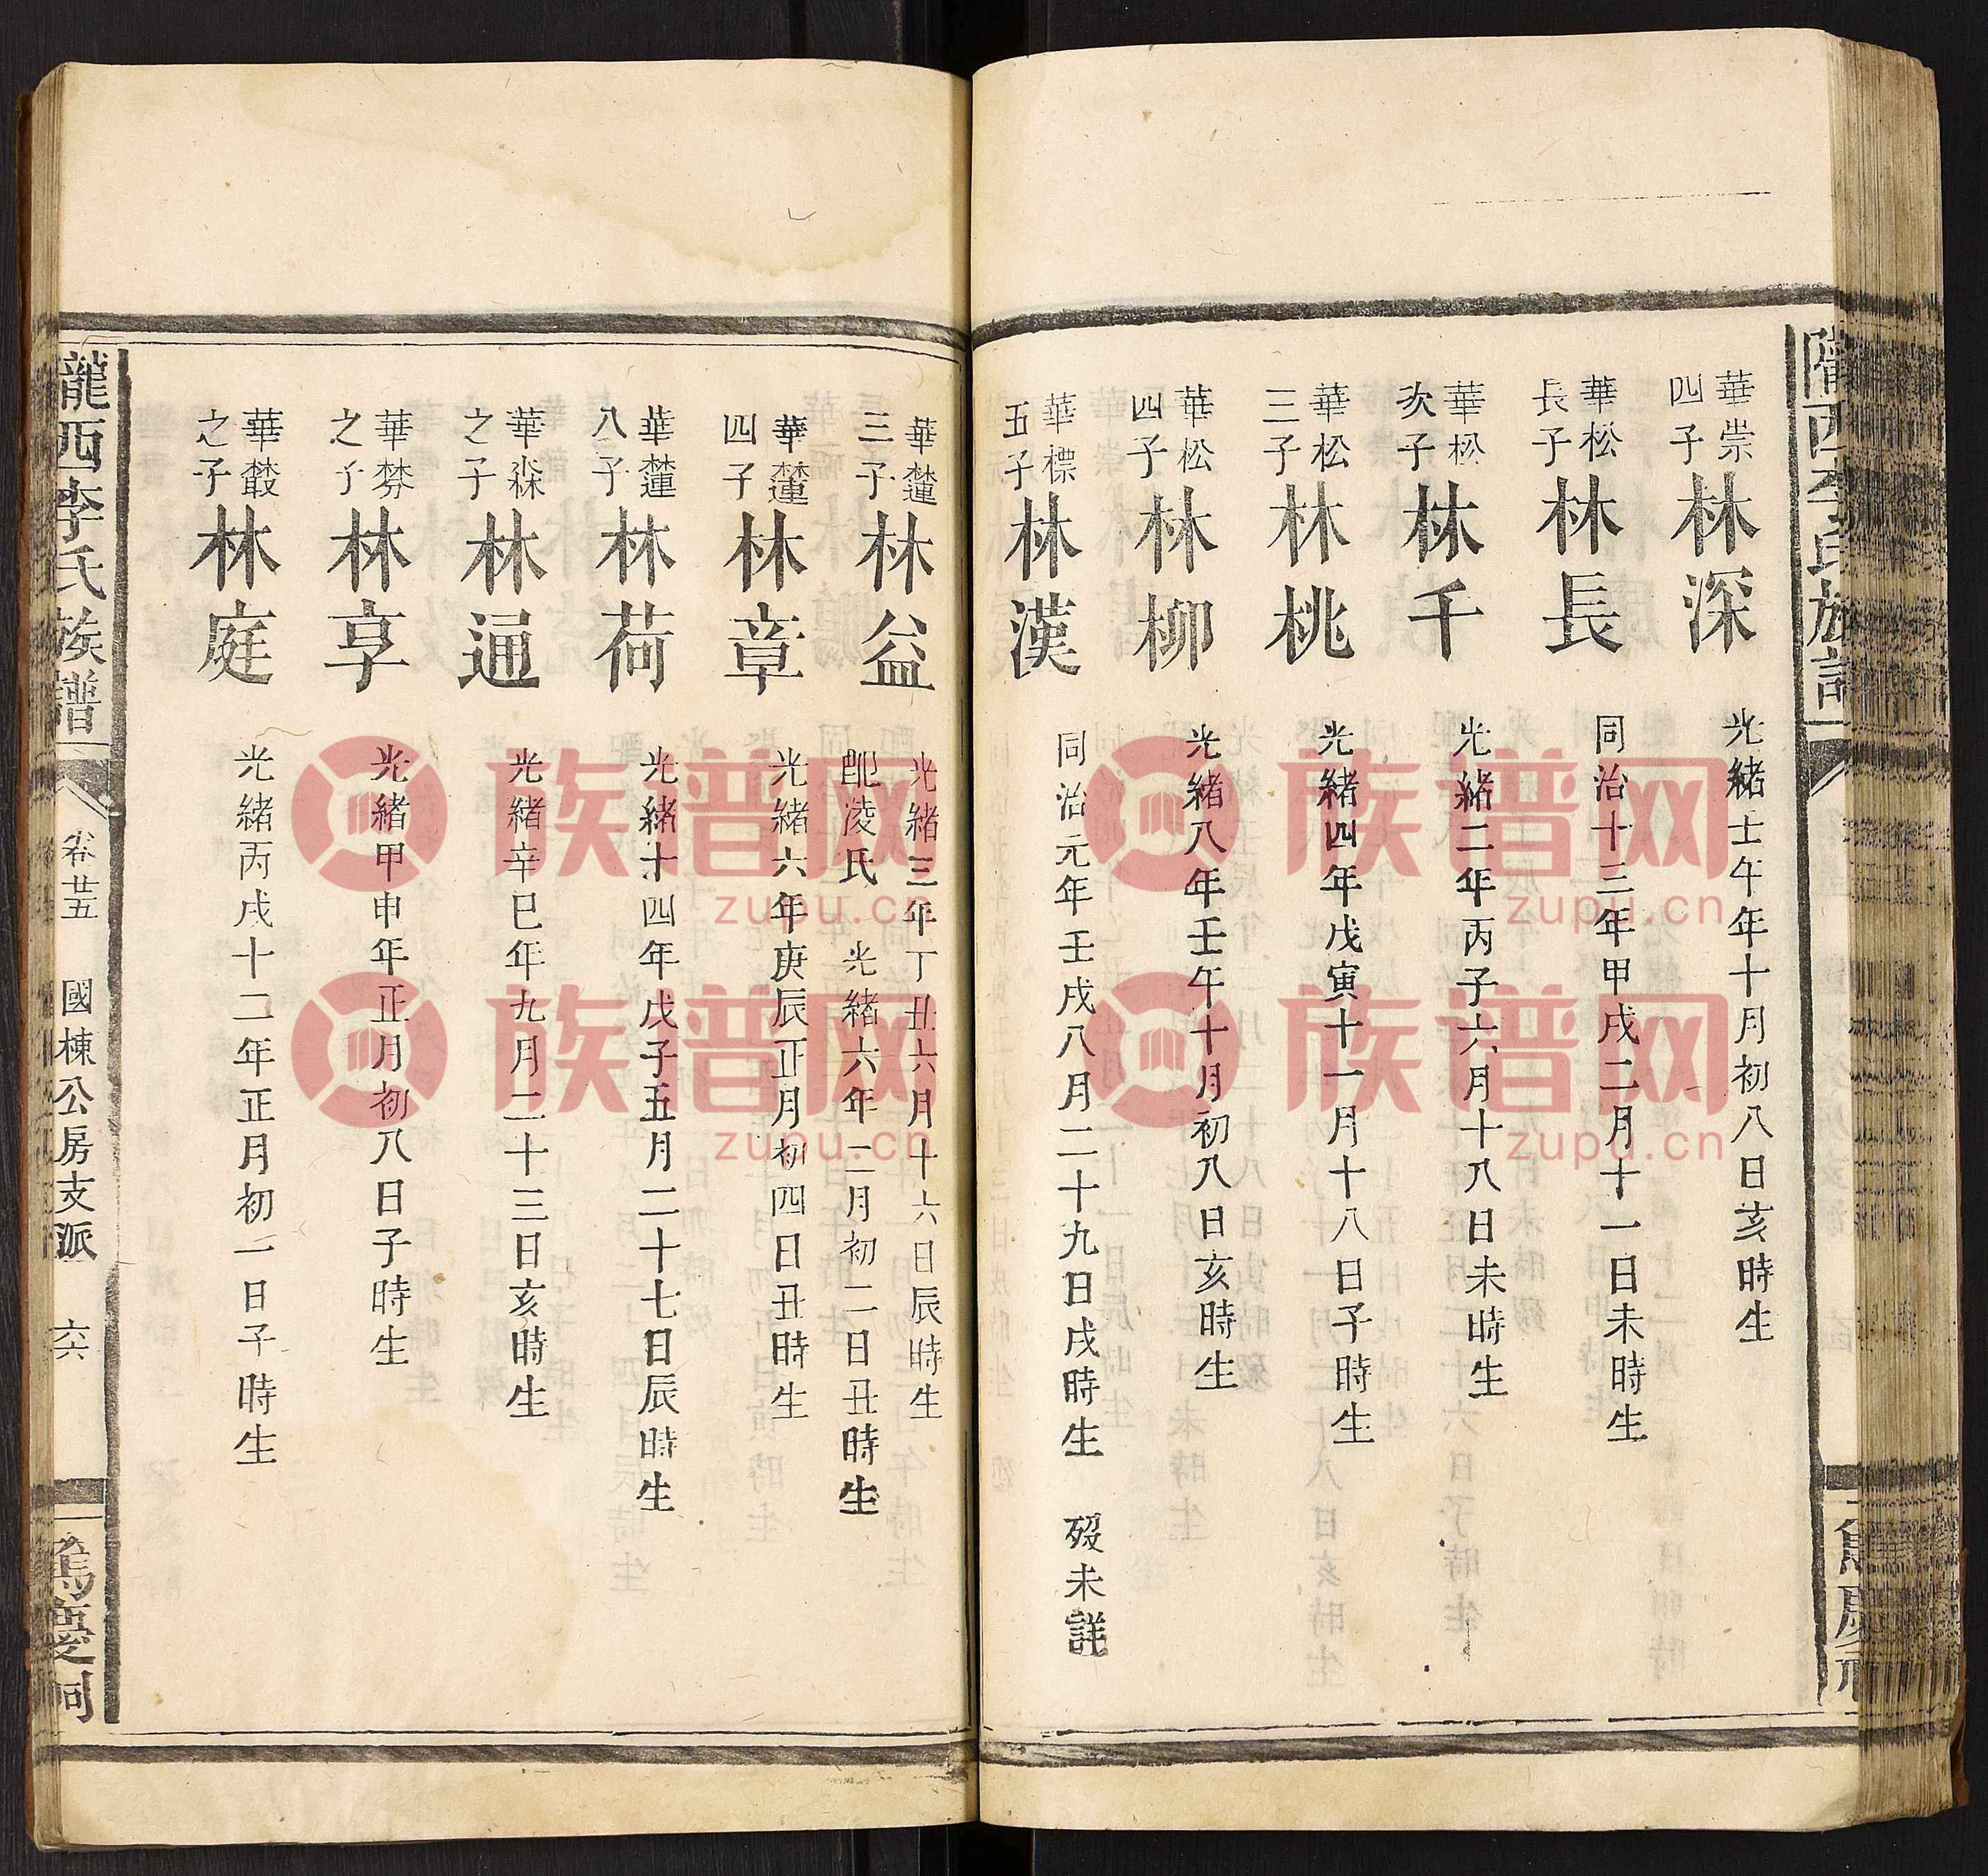 華崇
四子
林深
光緒壬午年十月初八日亥時生
華松
長子
林長
同治十三年甲戌二月十一日未時生
華松
次子
林千
光緒二年丙子六月十八日未時生
華松
三子
林桃
光緒四年戊寅十一月十八日子時生
華松
四子
林柳
光緒八年壬午十月初八日亥時生
華標
五子
林漢
同治元年壬戌八月二十九日戌時生 歿未詳
華槤
三子
林益
光緒三年丁丑六月十六日辰時生
配淩氏 光緒六年二月初二日丑時生
華槤
四子
林章
光緒六年庚辰正月初四日丑時生
華槤
八子
林荷
光緒十四年戊子五月二十七日辰時生
華森
之子
林通
光緒辛巳年九月二十三日亥時生
華棼
之子
林享
光緒甲申年正月初八日子時生
華
之子
林庭
光緒丙戌十二年正月初一日子時生
隴西李氏族譜
卷廿五 國棟公房支派 六
篤慶祠
族谱网
zupu.cn
族谱网
zupu.cn
族谱网
zupu.cn
族谱网
zupu.cn